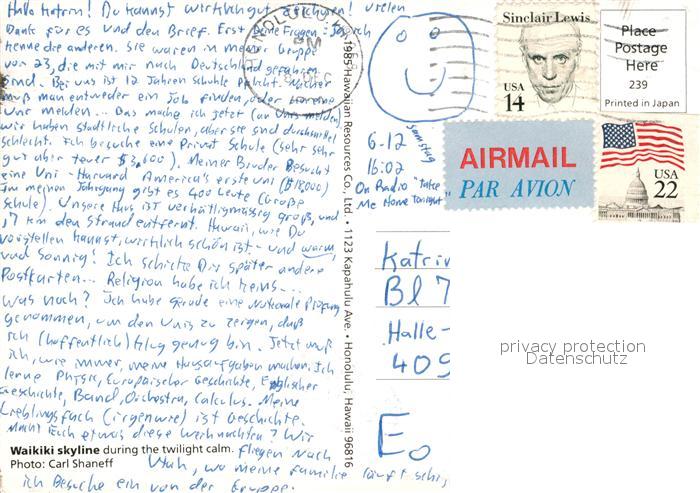 Hallo Katrin! Du kannst wirklich gut zeichnen! Vielen
Dank für es und den Brief. Erst Deine Fragen - Ja, ich
kenne die anderen. Sie waren in meiner Gruppe
von 23, die mit mir nach Deutschland gefahren
sind. Bei uns ist 12 Jahren Schule Pflicht. Nachher
muß man entweder ein Job finden, oder
Uni melden... Das mache ich jetzt (an Unis melden)
wir haben staatliche Schulen, aber sie sind durchschnittlich
schlecht. Ich besuche eine Privat Schule (sehr sehr
gut aber teuer $3,600). Meiner Bruder Besucht
eine Uni - Harvard America's erste uni ($18,000)
Im meinen Jahrgang gibt es 400 Leute (Große
Schule). Unsere Haus ist verhältigmässig groß, und
,7 km den Strand entfernt. Hawaii, wie Du
vorstellen kannst, wirklich schön ist - und warm,
und Sonnig! Ich schicke Dir später andere
Postkarten... Religion habe ich keins...
Was noch? Ich habe gerade eine Nationale Prüfung
genommen, um den Unis zu zeigen, daß
ich (hoffentlich) klug genug bin. Jetzt muß
ich, wie immer, meine Hausaufgaben machen. Ich
lerne Physik, Europäischer Geschichte, Englischer
Geschichte, Band, Orchestra, Calculus. Meine
Lieblingsfach (irgenwie) ist Geschichte.
Macht Euch etwas diese Weihnachten? Wir
fliegen nach
Waikiki skyline during the twilight calm.
Photo: Carl Shaneff
Utah, wo meine Familie läuft schi,
ich Besuche ein von der Gruppe.
© 1985 Hawaiian Resources Co., Ltd. • 1123 Kapahulu Ave. • Honolulu, Hawaii 96816
HONOLULU
PM
DEC
Sinclair Lewis
USA
14
Place
Postage
Here
239
Printed in Japan
AIRMAIL
PAR AVION
USA
22
6-12 Samstag
16:02
On Radio "Take
Me Home Tonight"
Katrin
Bl 7
Halle-
409
privacy protection
Datenschutz